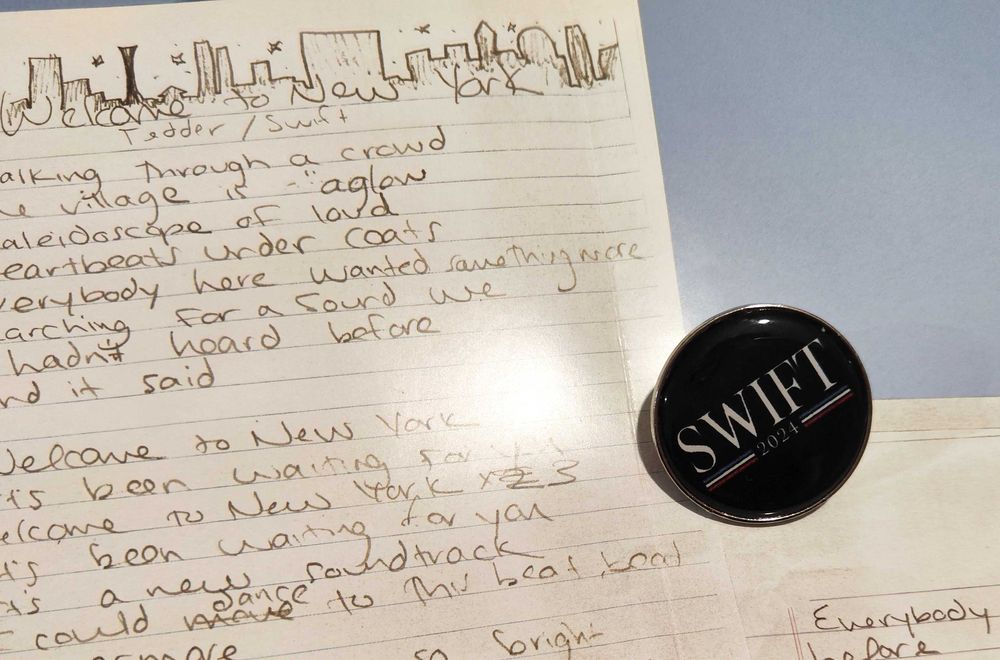 Welcome to New York
Tedder / Swift
alking through a crowd
he village is aglow
aleidoscope of loud
eartbeats under coats
verybody here wanted something more
arching for a sound we
hadn't heard before
nd it said
Welcome to New York
t's been waiting for
elcome to New York x 3
t's been waiting for you
t's a new soundtrack
I could move dance to this beat, beat
ermore
so bright
SWIFT
2024
Everybody
before